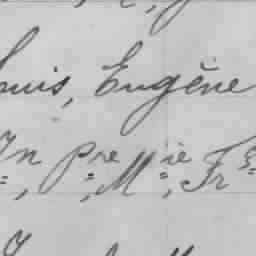 ouis, Eugène
Jn Pre Mie Frs